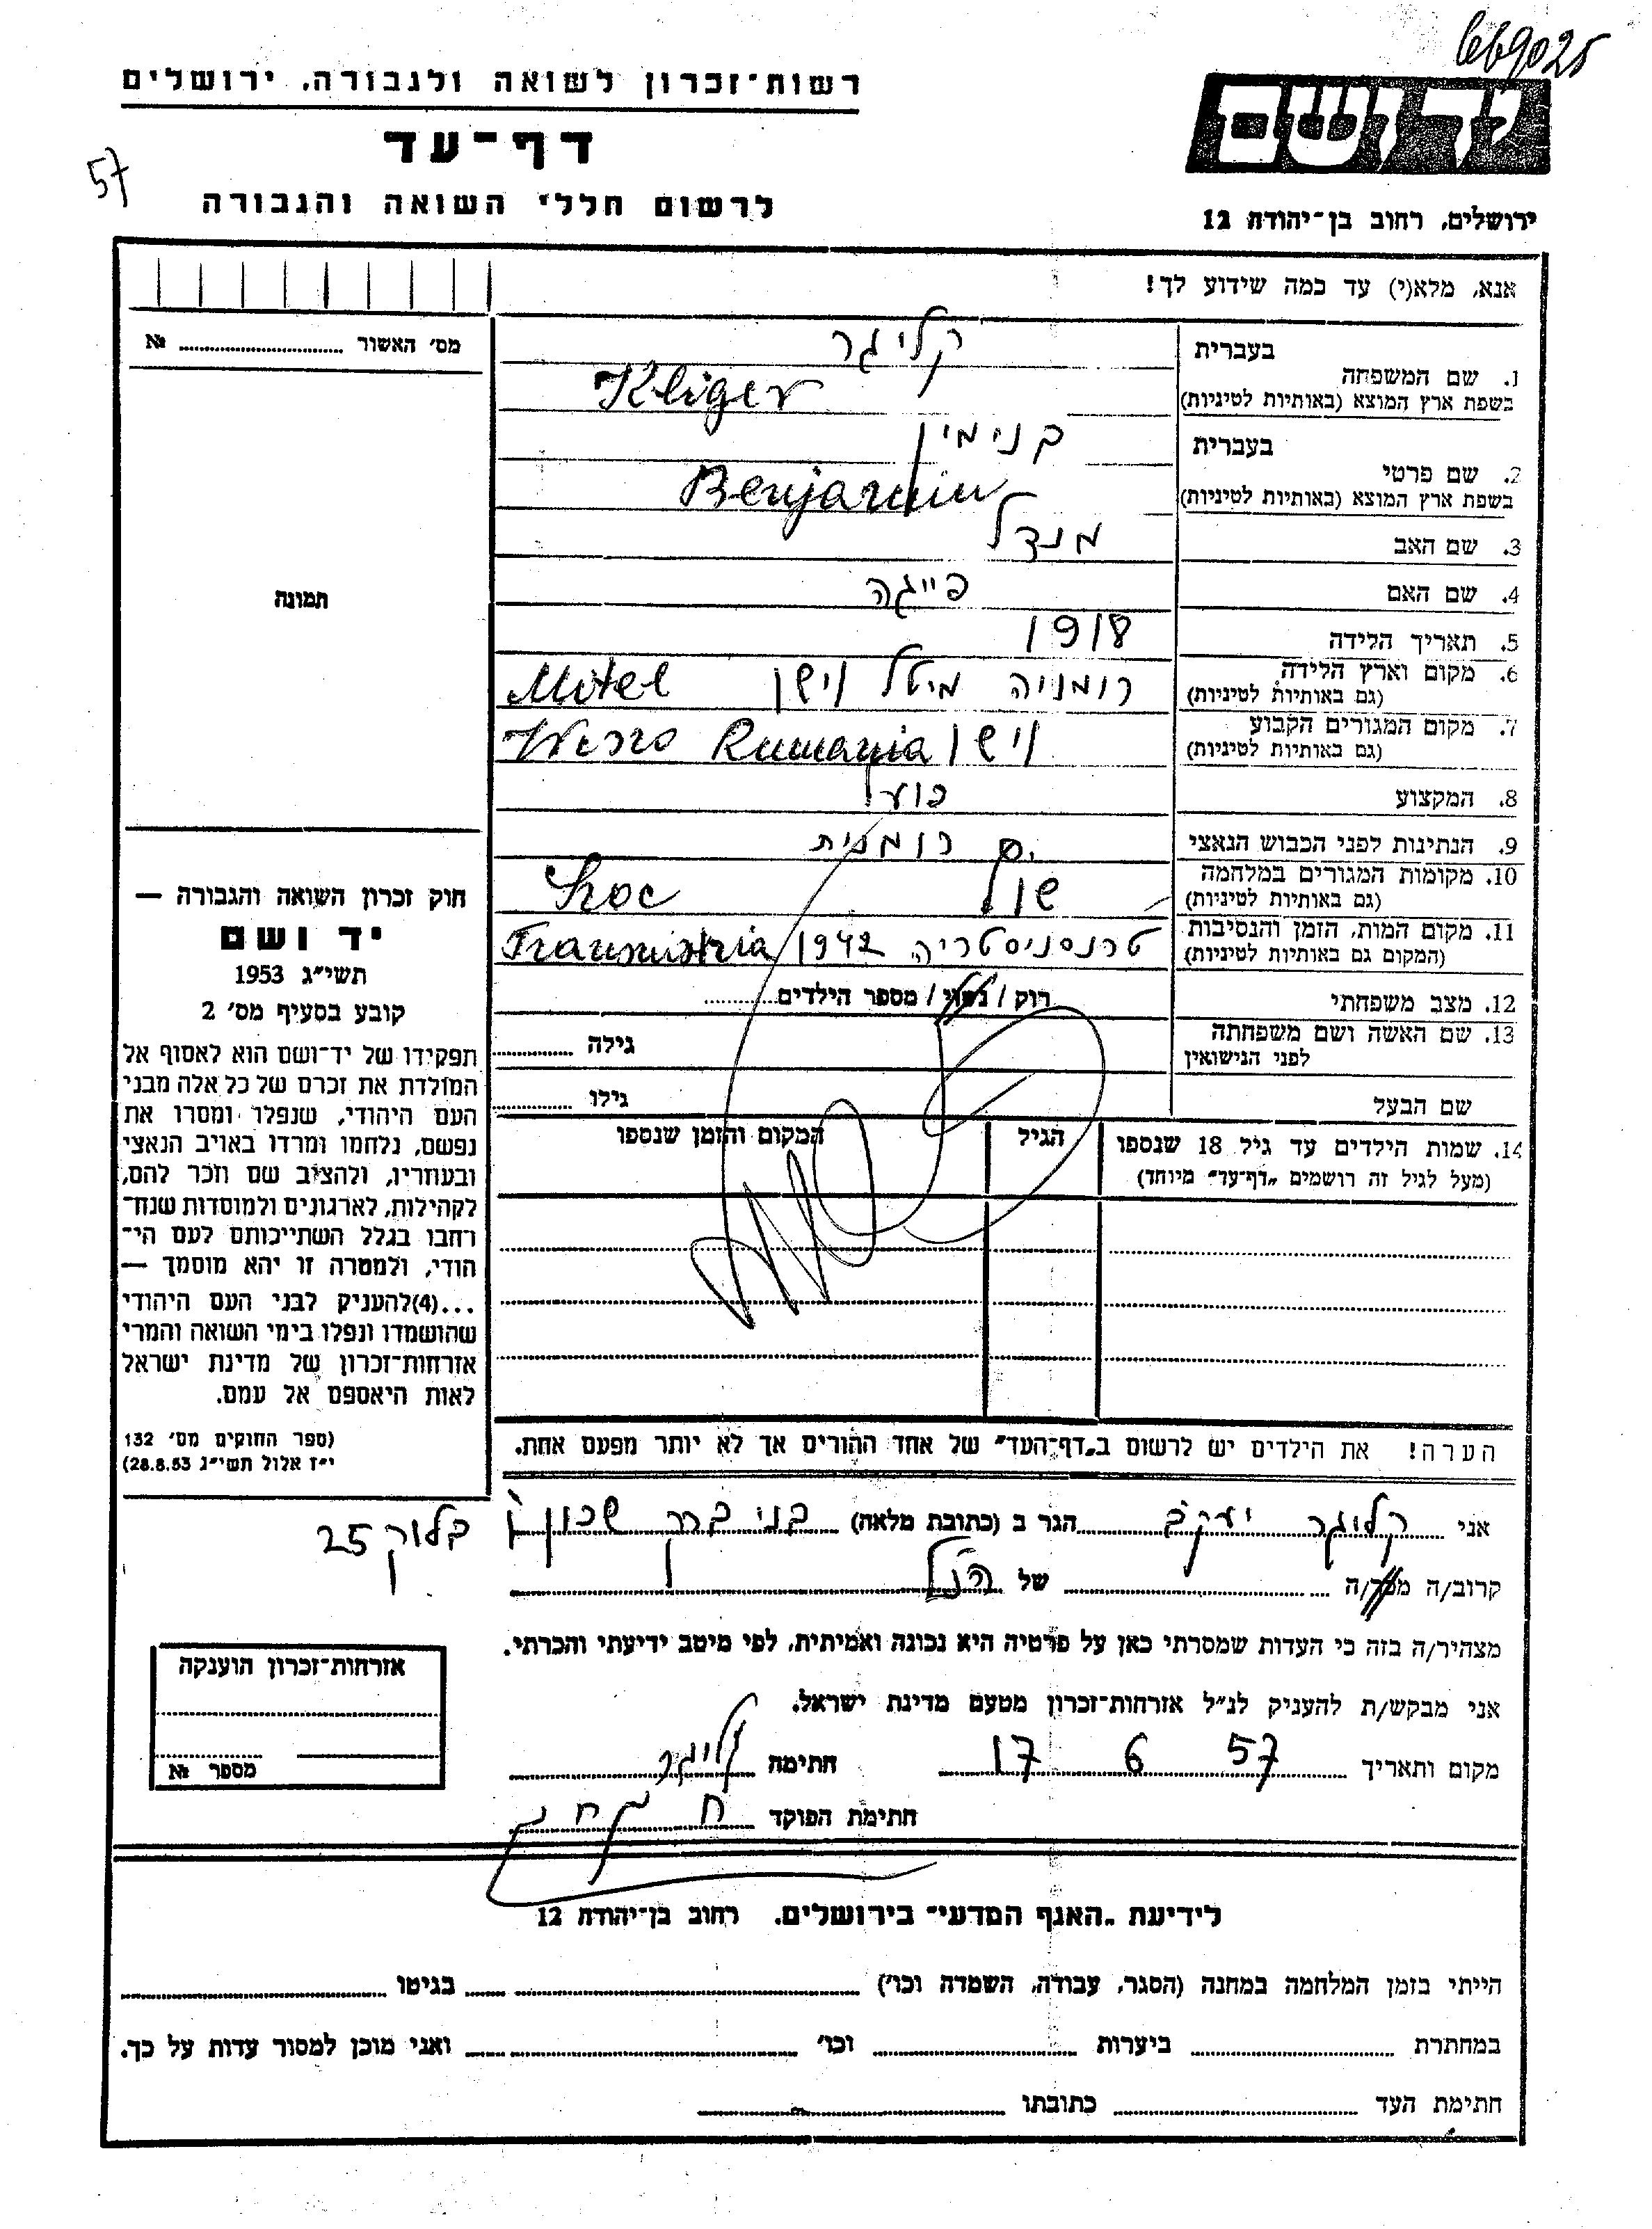 669025
רשות־זכרון לשואה ולגבורה, ירושלים
יד ושם
דף־עד
57
לרשום חללי השואה והגבורה
ירושלים, רחוב בן־יהודה 12
אנא, מלא(י) עד כמה שידוע לך!
מס׳ האשור № 
1. שם המשפחה
בעברית קליגר
בשפת ארץ המוצא (באותיות לטיניות) Kliger
2. שם פרטי
בעברית בנימין
בשפת ארץ המוצא (באותיות לטיניות) Benjamin
3. שם האב מנדל
4. שם האם פייגה
תמונה
5. תאריך הלידה 1918
6. מקום וארץ הלידה רומניה מיטל וישו Mitel
(גם באותיות לטיניות)
7. מקום המגורים הקבוע וישו Rumania
(גם באותיות לטיניות)
8. המקצוע פועל
9. הנתינות לפני הכבוש הנאצי רומנית
10. מקומות המגורים במלחמה
(גם באותיות לטיניות)
11. מקום המות, הזמן והנסיבות טרנסניסטריה 1942 Transnistria
(המקום גם באותיות לטיניות)
12. מצב משפחתי רוק / נשוי / מספר הילדים
13. שם האשה ושם משפחתה
לפני הנישואין
גילה
שם הבעל גילו
14. שמות הילדים עד גיל 18 שנספו
(מעל לגיל זה רושמים „דף־עד״ מיוחד)
הגיל
המקום והזמן שנספו
חוק זכרון השואה והגבורה —
יד ושם
תשי״ג 1953
קובע בסעיף מס׳ 2
תפקידו של יד־ושם הוא לאסוף אל
המולדת את זכרם של כל אלה מבני
העם היהודי, שנפלו ומסרו את
נפשם, נלחמו ומרדו באויב הנאצי
ובעוזריו, ולהציב שם וזכר להם,
לקהילות, לארגונים ולמוסדות שנח־
רבו בגלל השתייכותם לעם הי־
הודי, ולמטרה זו יהא מוסמך —
...(4)להעניק לבני העם היהודי
שהושמדו ונפלו בימי השואה והמרי
אזרחות־זכרון של מדינת ישראל
לאות היאספם אל עמם.
(ספר החוקים מס׳ 132
י״ז אלול תשי״ג 28.8.53)
הערה! את הילדים יש לרשום ב„דף־העד״ של אחד ההורים אך לא יותר מפעם אחת.
אני קליגר יעקב הגר ב (כתובת מלאה) בני ברק שכון ו בלוק 25
קרוב/ה מכר/ה של הנ״ל
מצהיר/ה בזה כי העדות שמסרתי כאן על פרטיה היא נכונה ואמיתית, לפי מיטב ידיעתי והכרתי.
אני מבקש/ת להעניק לנ״ל אזרחות־זכרון מטעם מדינת ישראל.
מקום ותאריך 17 6 57 חתימה קליגר
חתימת הפוקד
אזרחות־זכרון הוענקה
מספר №
לידיעת „האגף המדעי״ בירושלים, רחוב בן־יהודה 12
הייתי בזמן המלחמה במחנה (הסגר, עבודה, השמדה וכו׳) בגיטו
במחתרת ביערות וכו׳ ואני מוכן למסור עדות על כך.
חתימת העד כתובתו